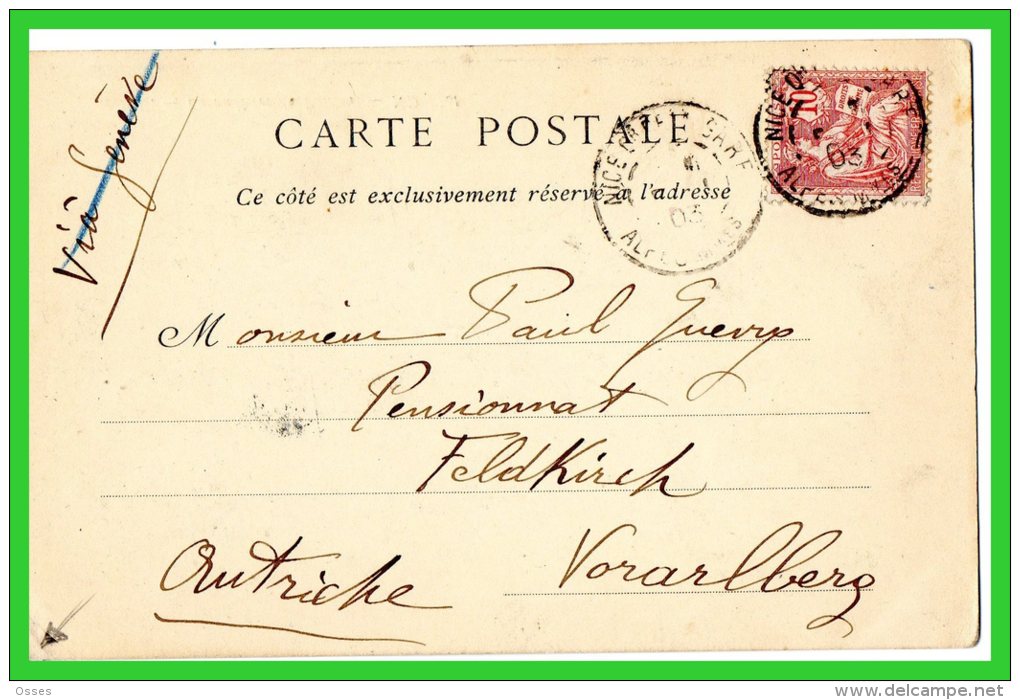 Vià Genève
CARTE POSTALE
Ce côté est exclusivement réservé à l'adresse
NICE GARE
ALPES MMES
03
10
NICE GARE
ALPES
03
Monsieur Paul Guerry
Pensionnat
Feldkirch
Autriche Vorarlberg
Osses
delcampe.net